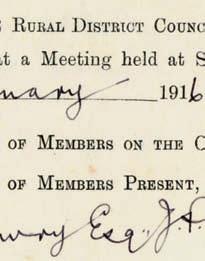 RURAL DISTRICT COUNC
at a Meeting held at S
nuary 1916
OF MEMBERS ON THE C
OF MEMBERS PRESENT,
Esq., J.P.